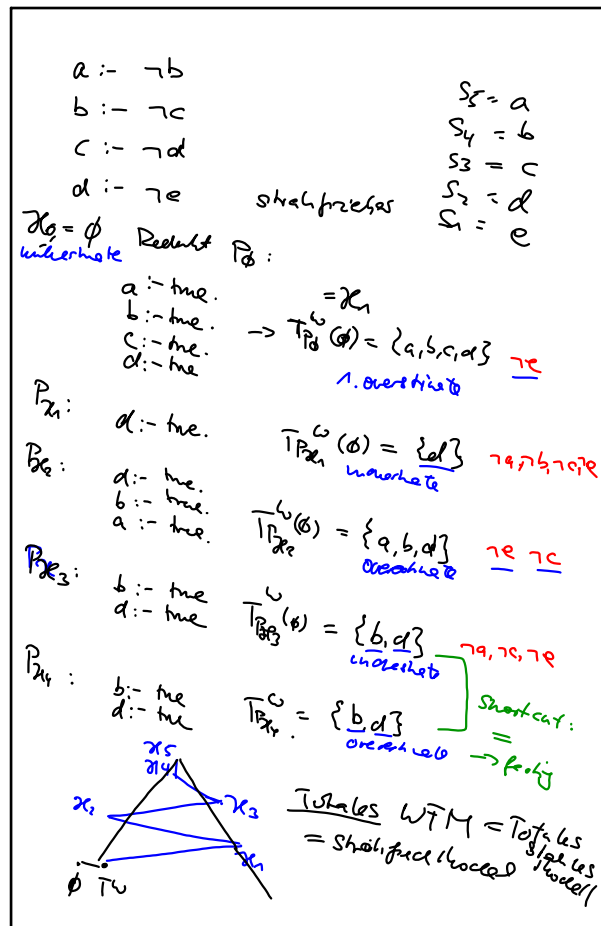 a :- ¬b
b :- ¬c
c :- ¬d
d :- ¬e
S5 = a
S4 = b
S3 = c
S2 = d
S1 = e
ℋ0 = ∅ Redukt P∅ :
a :- true.
b :- true.
c :- true.
d :- true
= ℋ1
→ T^ω_P∅ (∅) = {a,b,c,d} ¬e
1. overestimate
Pℋ1: d :- true. T^ω_Pℋ1 (∅) = {d} ¬a,¬b,¬c,¬e
Pℋ2:
d :- true.
b :- true.
a :- true.
T^ω_Pℋ2 (∅) = {a,b,d} ¬e ¬c
overestimate
Pℋ3:
b :- true
d :- true
T^ω_Pℋ3 (∅) = {b,d} ¬a,¬c,¬e
underestimate
Pℋ4:
b :- true
d :- true
T^ω_Pℋ4 = {b,d}
overestimate
shortcut:
=
→ fertig
ℋ5
ℋ4
ℋ2
ℋ3
ℋ1
∅ Tω
Totales WFM = Totales
stabiles
Modell
= stratified Model